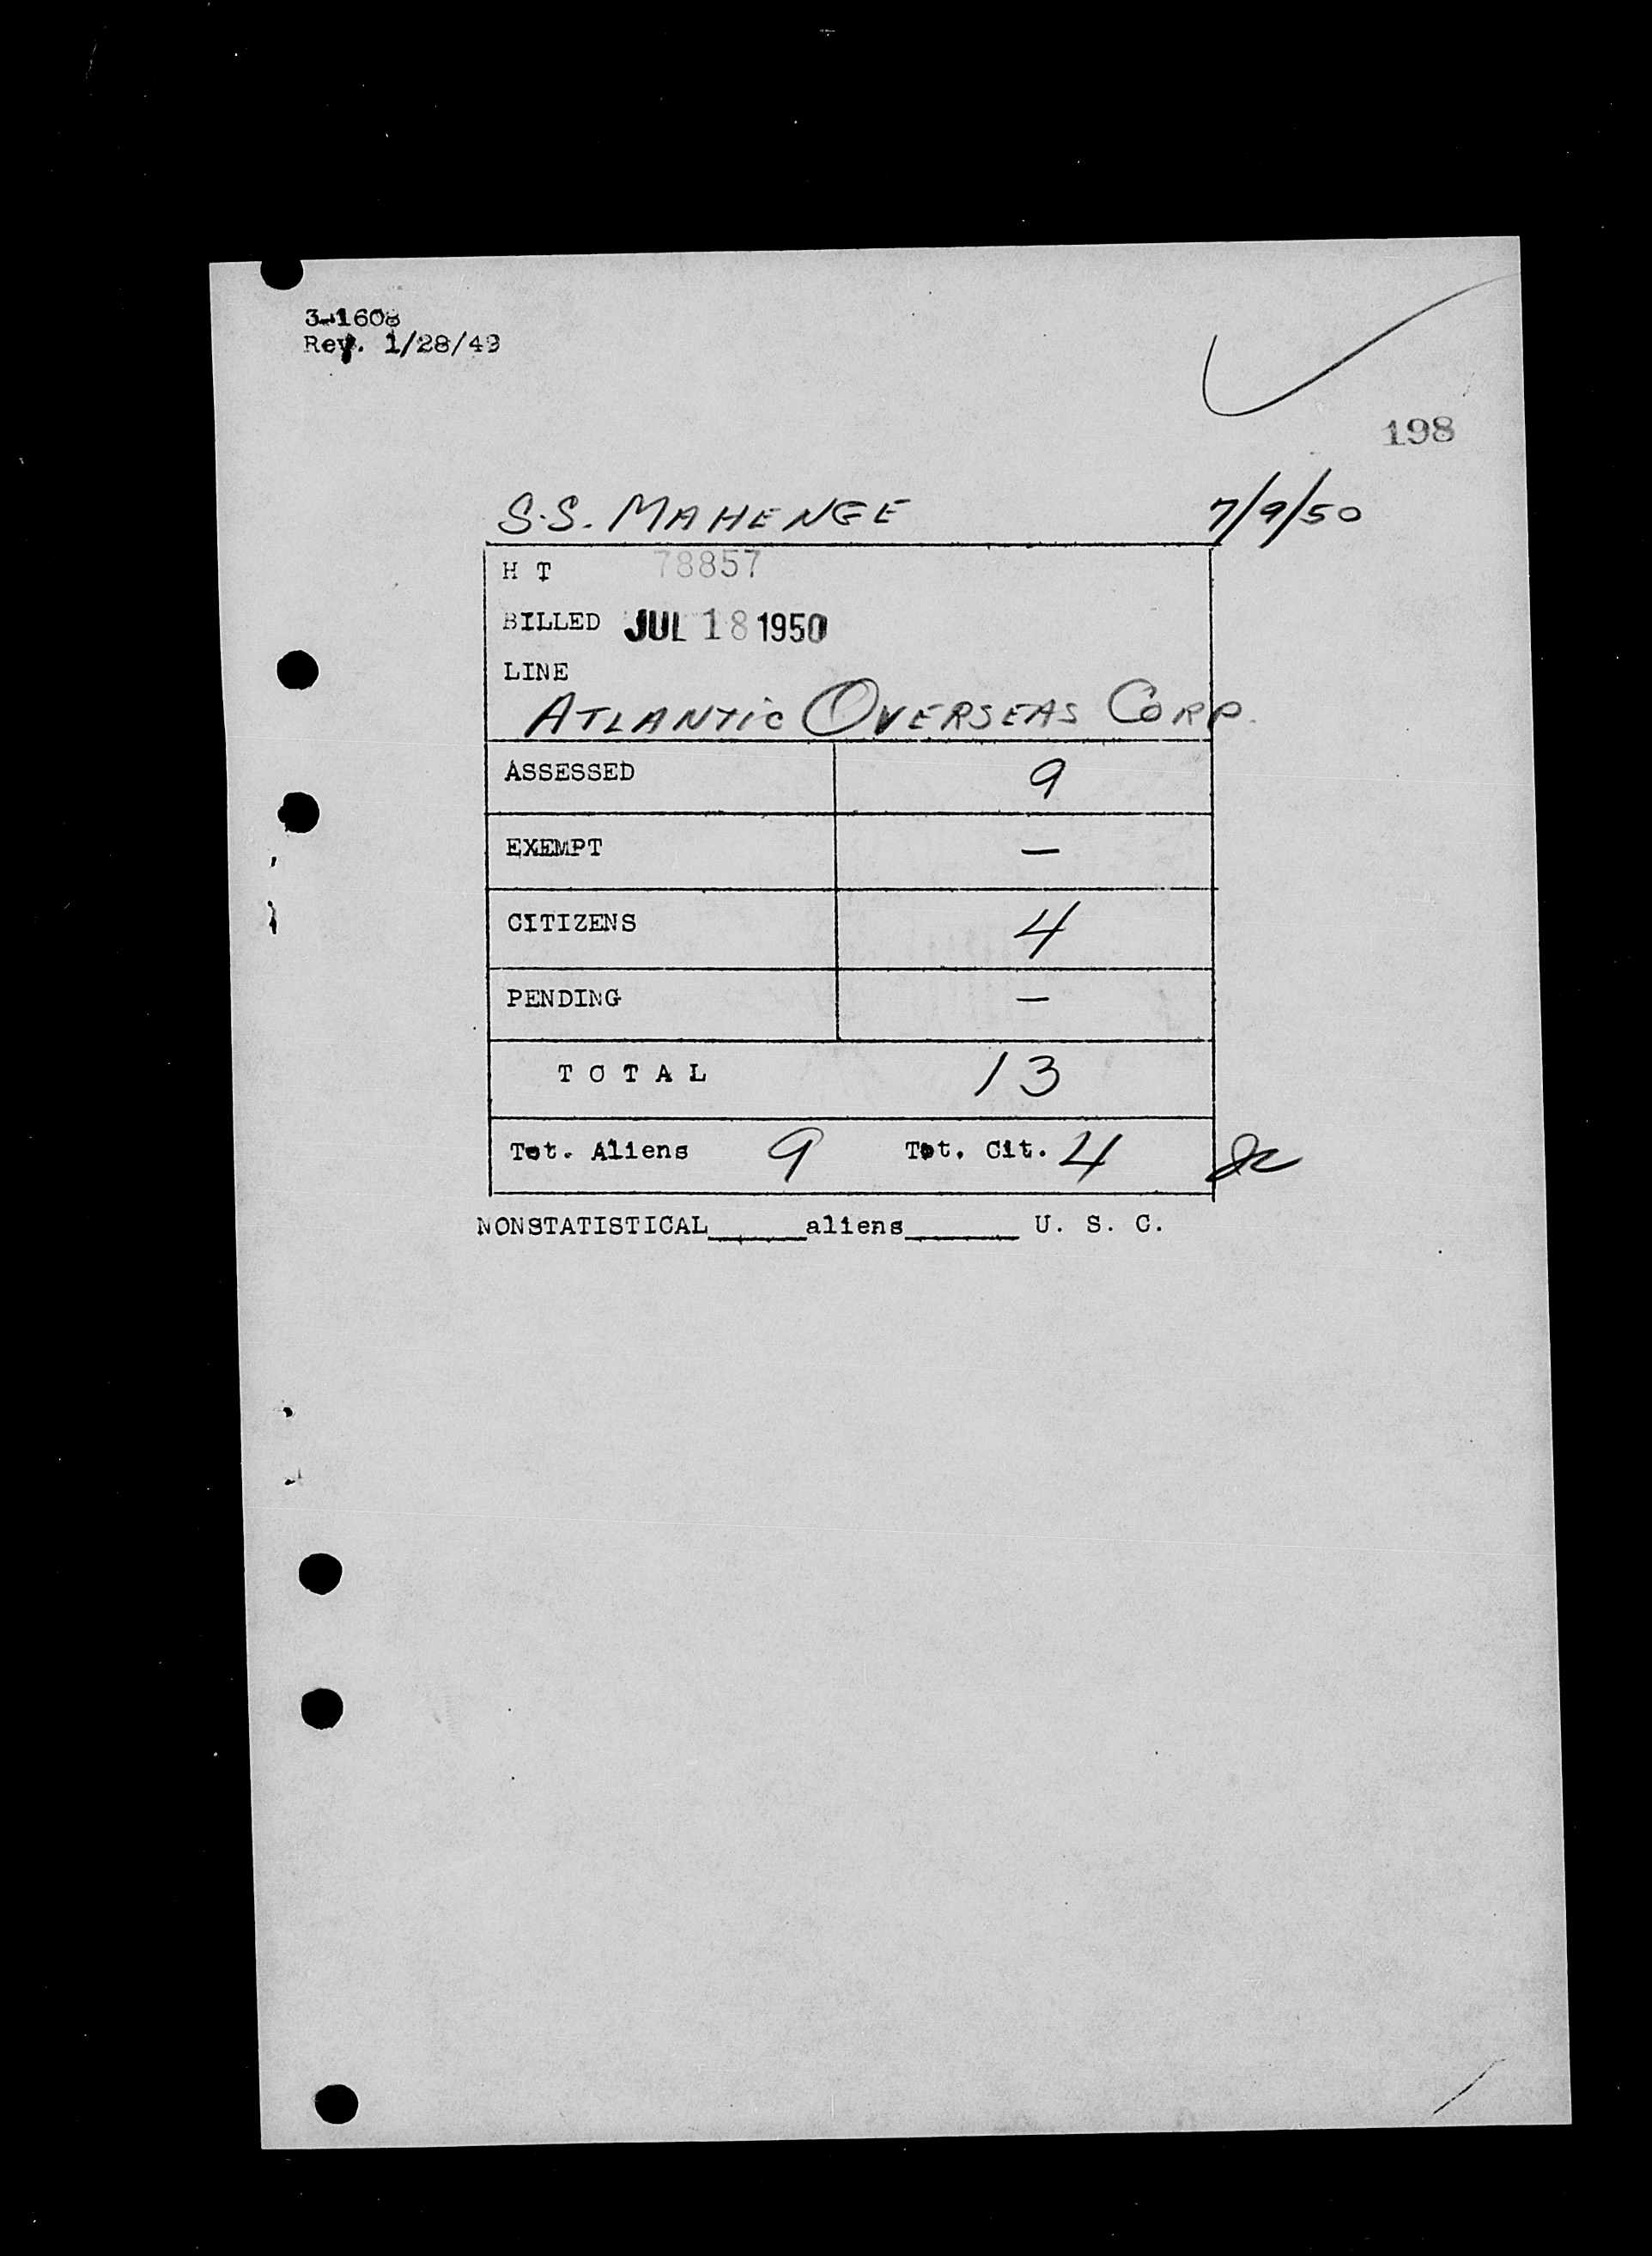 3-1608
Rev. 1/28/49
198
S.S. MAHENGE 7/9/50
H T 78857
BILLED JUL 18 1950
LINE
ATLANTIC OVERSEAS CORP.
ASSESSED 9
EXEMPT —
CITIZENS 4
PENDING —
T O T A L 13
Tot. Aliens 9 Tot. Cit. 4
NONSTATISTICAL______aliens_______ U. S. C.